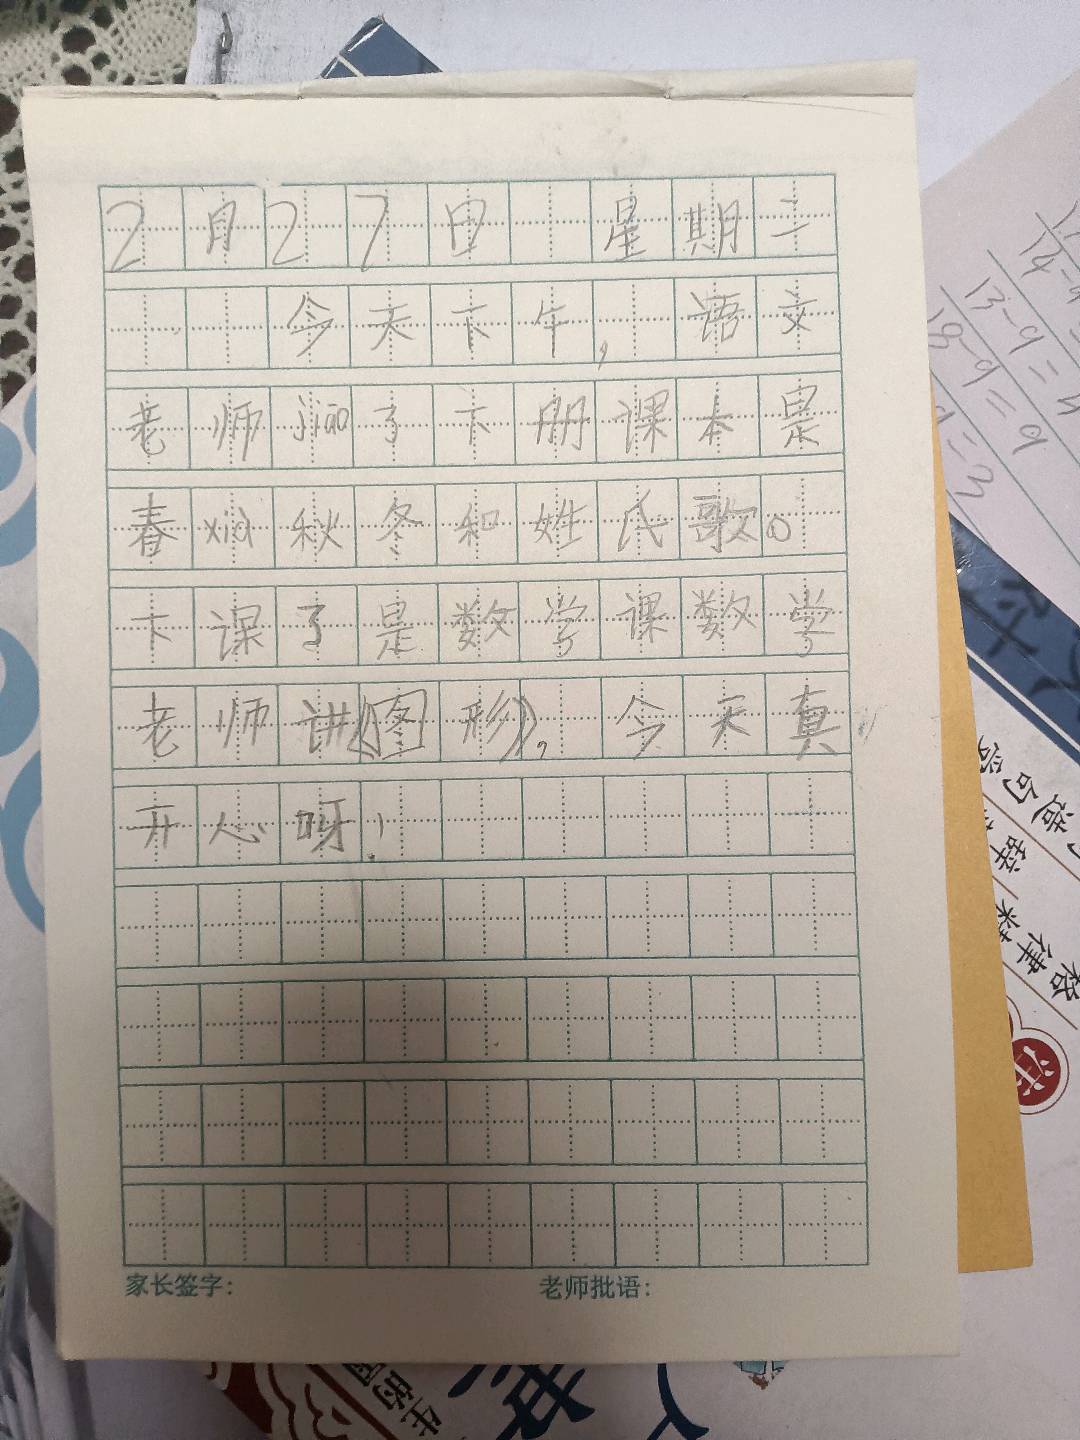 2月27日 星期二
今天下午,语文
老师jiao了下册课本是
春xia秋冬和姓氏歌。
下课了是数学课数学
老师讲《图形》,今天真
开心呀!
家长签字: 老师批语:
13-9=4
18-9=9